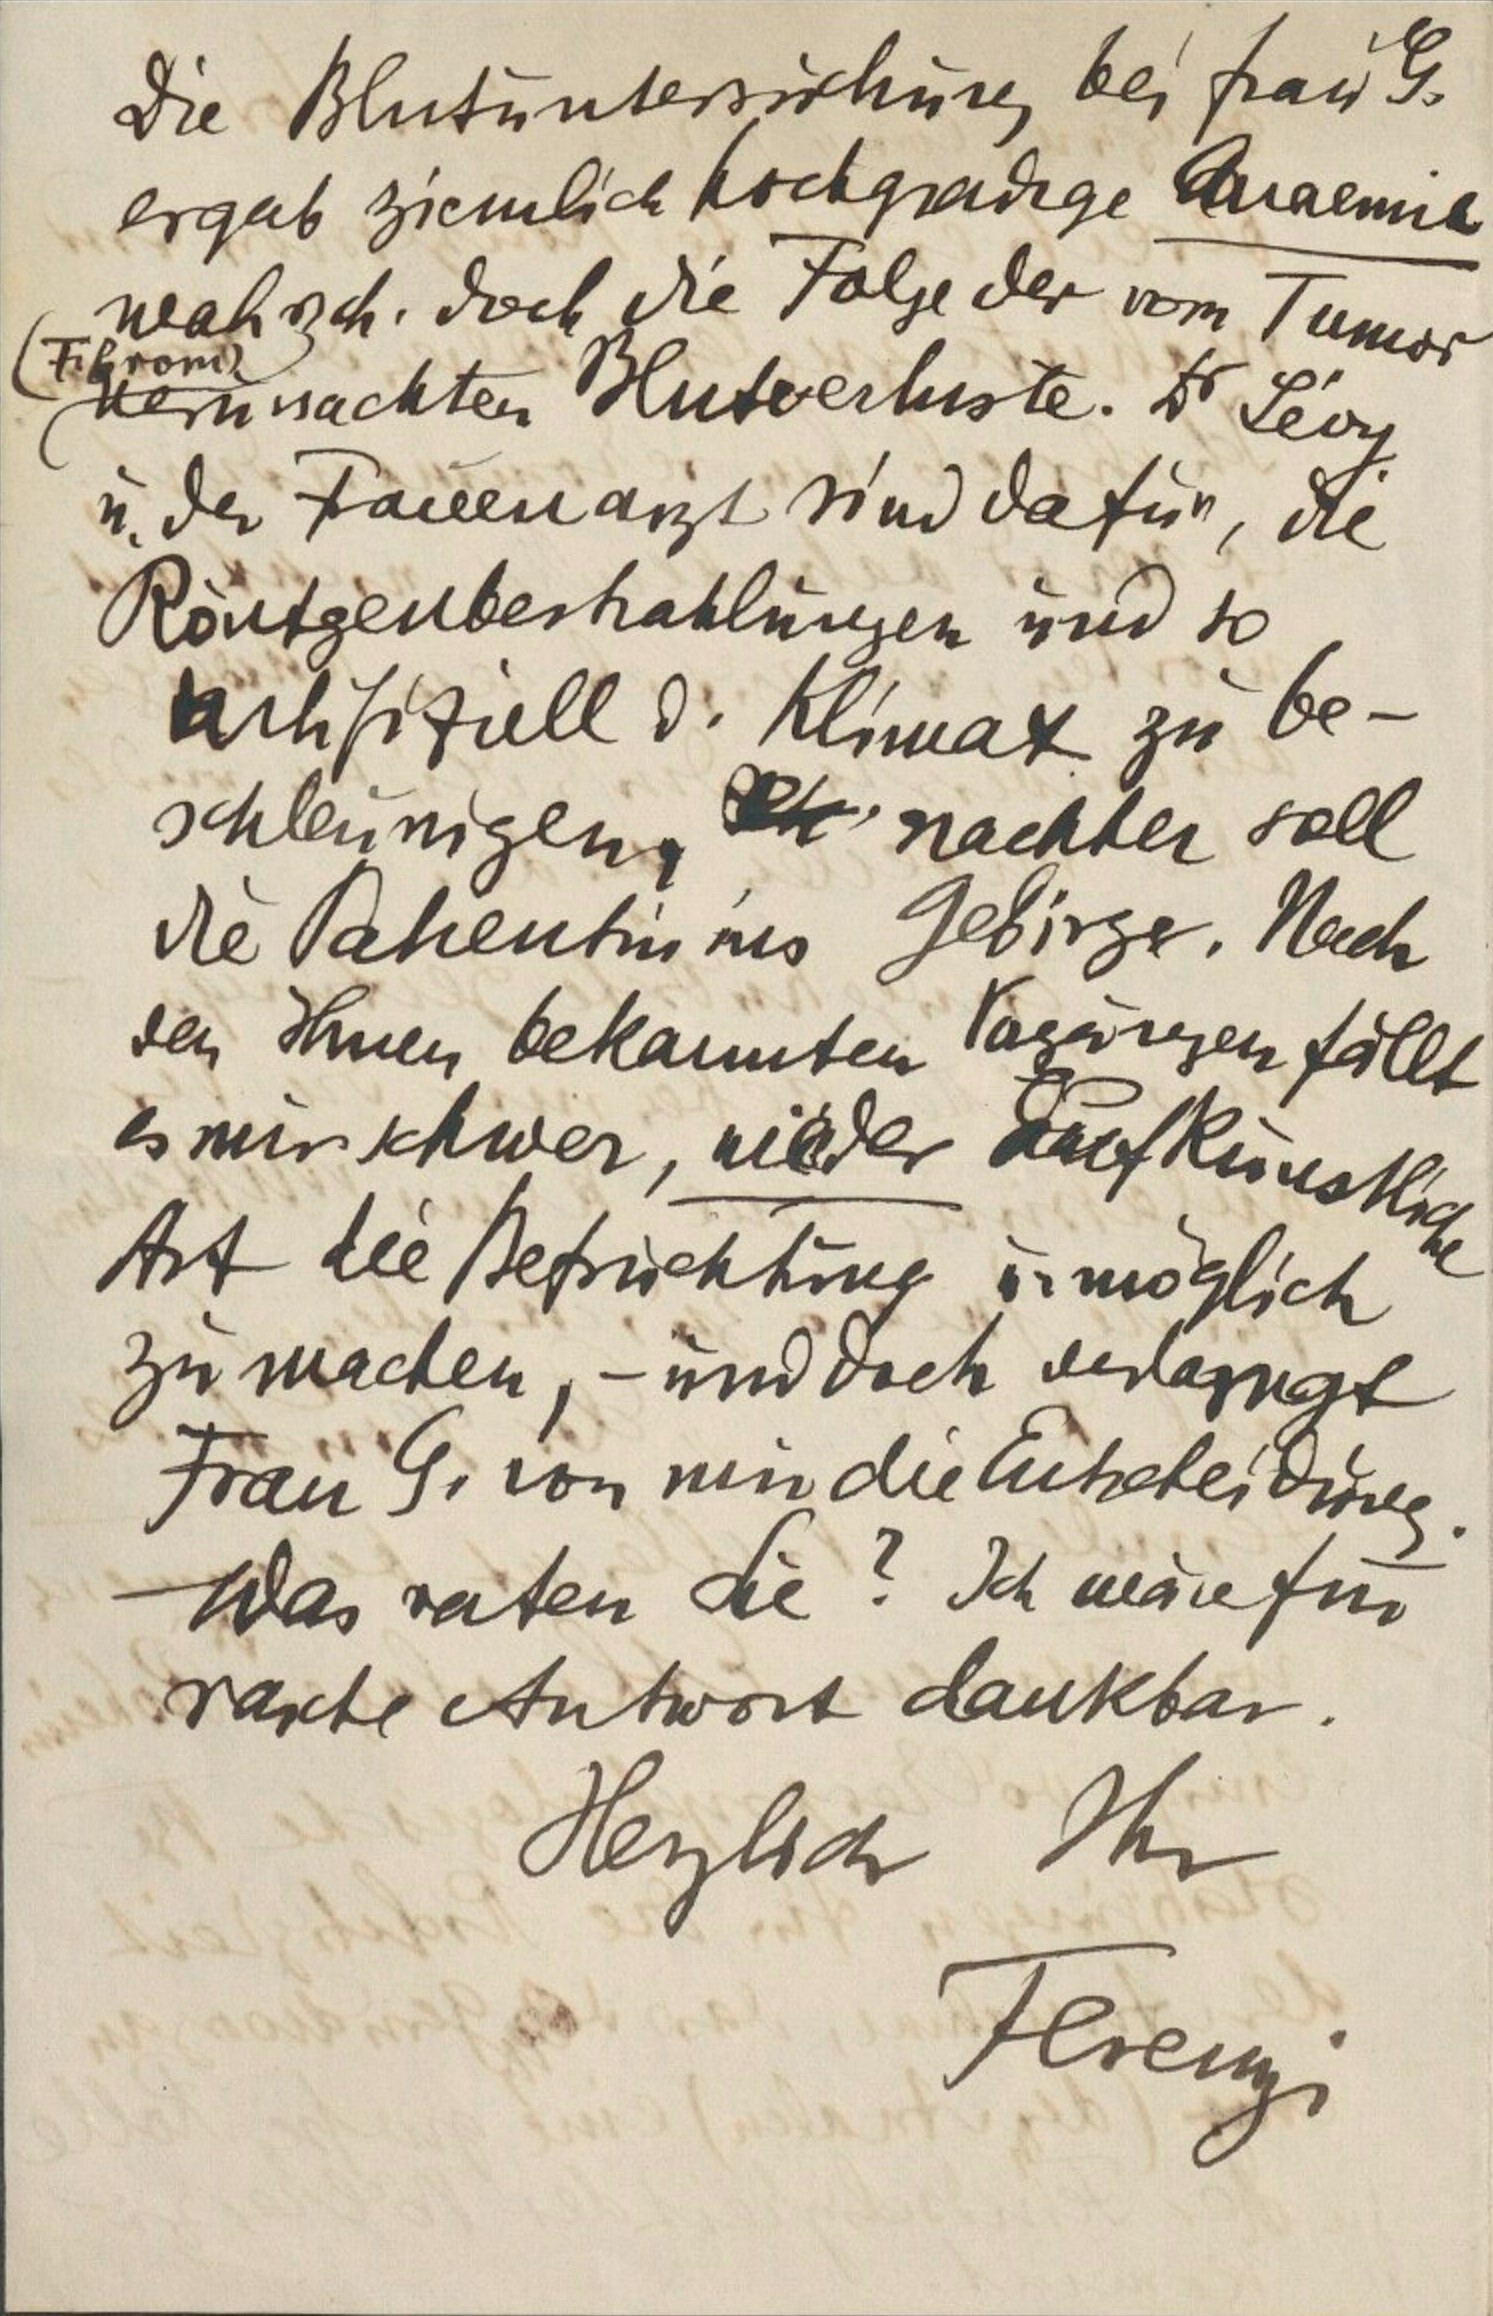 Die Blutuntersuchung bei Frau G.
ergab ziemlich hochgradige Anaemie
wahrsch. doch die Folge der vom Tumor
(Fibrom)
verursachten Blutverluste. Dr Lévy
u. der Frauenarzt sind dafür, die
Röntgenbestrahlungen und so
artifiziell d. Klimax zu be-
schleunigen, nachher soll
die Patientin ins Gebirge. Nach
den Ihnen bekannten Vorgängen fällt
es mir schwer, wieder auf künstliche
Art die Befruchtung unmöglich
zu machen, – und doch verlangt
Frau G. von mir die Entscheidung.
– Was raten Sie? Ich wäre für
rasche Antwort dankbar.
Herzlich Ihr
Ferenczi